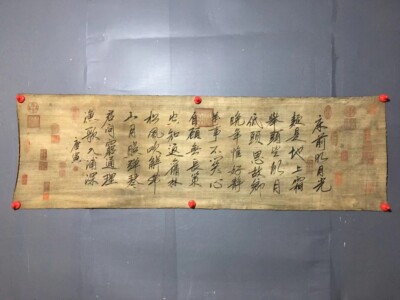 床前明月光
疑是地上霜
舉頭望明月
低頭思故鄉
晚年惟好靜
萬事不關心
自顧無長策
空知返舊林
松風吹解帶
山月照彈琴
君問窮通理
漁歌入浦深
唐寅